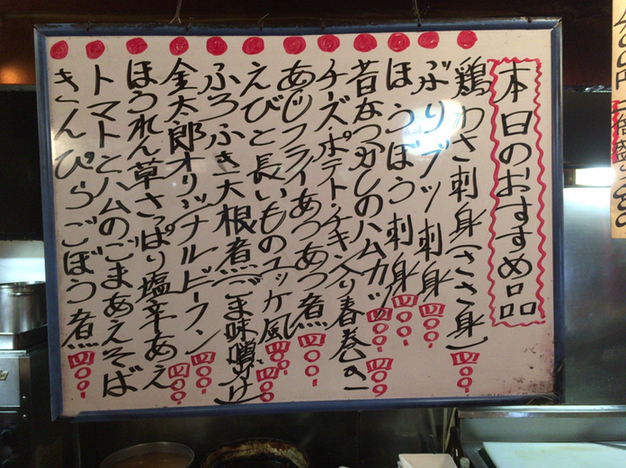 本日のおすすめ品
鶏わさ刺身(ささ身) 四〇〇
ぶりブツ刺身 四〇〇
ほうぼう刺身 四〇〇
昔なつかしのハムカツ 四〇〇
チーズポテト・チキン入り春巻き
あじフライあつあつ煮 四〇〇
えびと長いものユッケ風 四〇〇
ふろふき大根煮(ごま味噌づけ)
金太郎オリジナルビーフン 四〇〇
ほうれん草さっぱり塩辛あえ 四〇〇
トマトとハムのごまあえそば
きんぴらごぼう煮 四〇〇